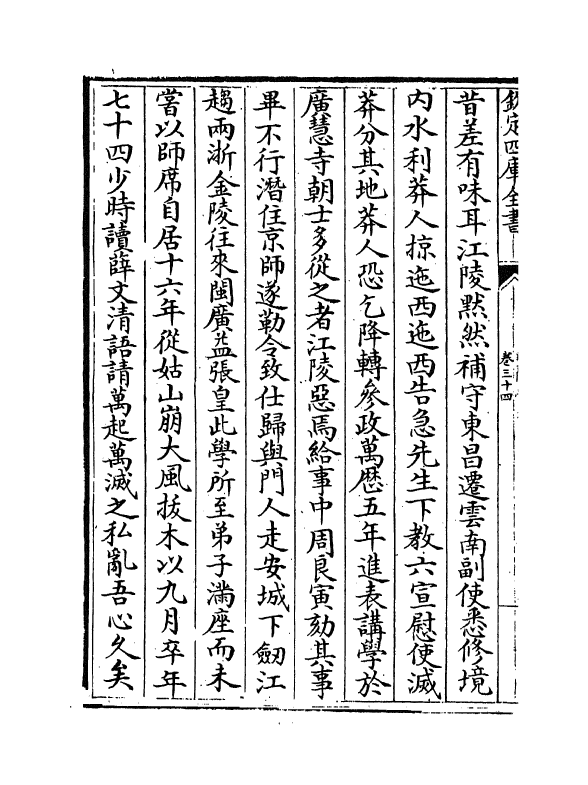 欽定四庫全書
卷三十四
昔差有味耳江陵黙然補守東昌遷雲南副使悉修境
内水利莽人掠迤西迤西告急先生下教六宣慰使滅
莽分其地莽人恐乞降轉參政萬歴五年進表講學於
廣慧寺朝士多從之者江陵惡焉給事中周良寅劾其事
畢不行潛住京師遂勒令致仕歸與門人走安城下劒江
趨兩浙金陵往來閩廣益張皇此學所至弟子滿座而未
嘗以師席自居十六年從姑山崩大風拔木以九月卒年
七十四少時讀薛文清語請萬起萬滅之私亂吾心久矣